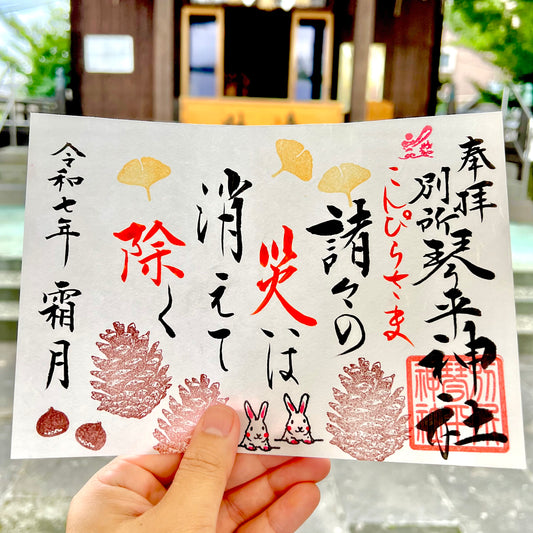 奉拝
別所琴平神社
こんぴらさま
諸々の
災いは
消えて
除く
令和七年
霜月